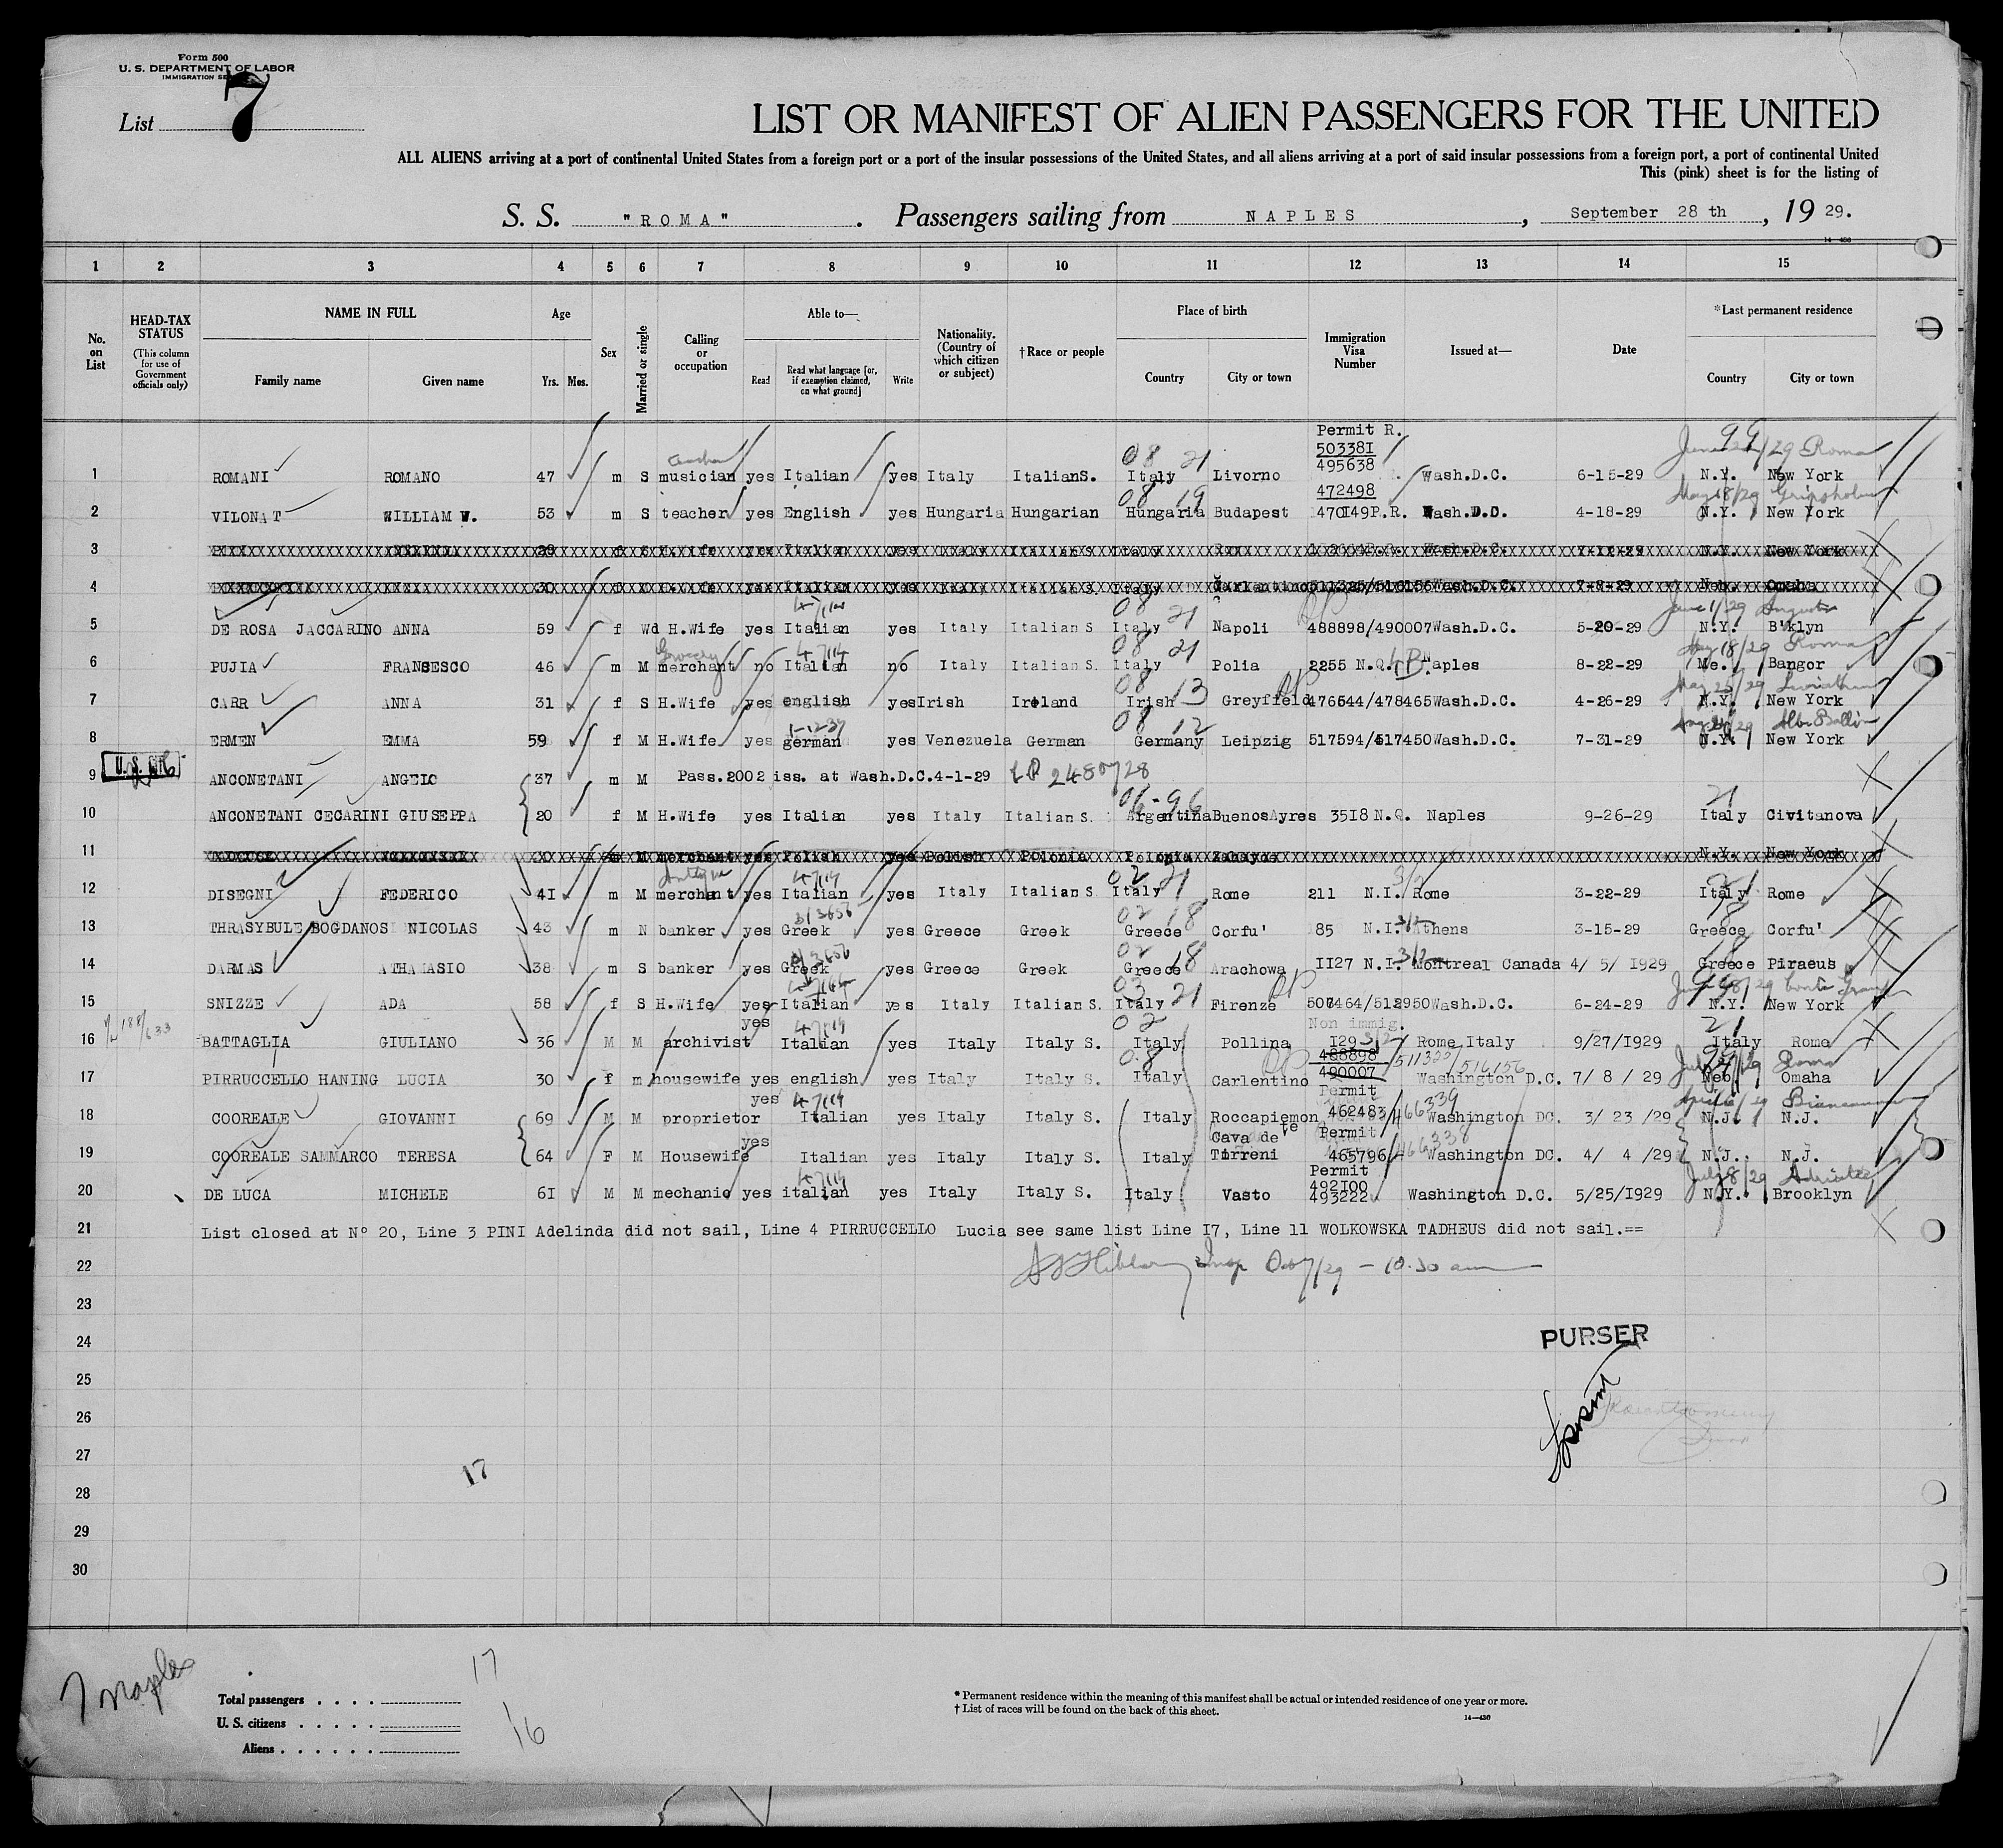 Form 500
U. S. DEPARTMENT OF LABOR
IMMIGRATION
List 7
LIST OR MANIFEST OF ALIEN PASSENGERS FOR THE UNITED
ALL ALIENS arriving at a port of continental United States from a foreign port or a port of the insular possessions of the United States, and all aliens arriving at a port of said insular possessions from a foreign port, a port of continental United
This (pink) sheet is for the listing of
S. S. "ROMA". Passengers sailing from NAPLES, September 28 th, 19 29.
1 2 3 4 5 6 7 8 9 10 11 12 13 14 15
No. on List
HEAD-TAX STATUS
(This column for use of Government officials only)
NAME IN FULL
Family name Given name
Age
Yrs. Mos.
Sex
Married or single
Calling or occupation
Able to—
Read
Read what language [or, if exemption claimed, on what ground]
Write
Nationality. (Country of which citizen or subject)
†Race or people
Place of birth
Country City or town
Immigration Visa Number
Issued at—
Date
*Last permanent residence
Country City or town
Permit R.
503381
1 ROMANI ROMANO 47 m S musician yes Italian yes Italy ItalianS. 08 21 Italy Livorno 495638 Wash.D.C. 6-15-29 N.Y. New York
472498
2 VILONAT WILLIAM W. 53 m S teacher yes English yes Hungaria Hungarian 08 19 Hungaria Budapest 470149P.R. Wash.D.C. 4-18-29 May 18/29 Gripsholm N.Y. New York
3 29 f S H.Wife yes Italian yes Italy Italian S Italy Wash.D.C. 7-12-29 N.Y. New York
4 30 f H.Wife yes Italian yes Italy Italian S. Italy Carlentino 511325/516156 Wash.D.C. 7-8-29 Neb. Omaha
5 DE ROSA JACCARINO ANNA 59 f Wd H.Wife yes Italian yes Italy Italian S 08 21 Italy Napoli 488898/490007 Wash.D.C. 5-20-29 June 1/29 Augustus N.Y. B'klyn
6 PUJIA FRANSESCO 46 m M Grocery merchant no Italian no Italy Italian S. 08 21 Italy Polia 2255 N.Q. Naples 8-22-29 May 18/29 Roma Me. Bangor
7 CARR ANNA 31 f S H.Wife yes english yes Irish Ireland 08 13 Irish Greyffield 476644/478465 Wash.D.C. 4-26-29 May 25/29 Leviathan N.Y. New York
8 ERMEN EMMA 59 f M H.Wife yes german yes Venezuela German 08 12 Germany Leipzig 517594/517450 Wash.D.C. 7-31-29 Alb. Ballin N.Y. New York
9 U.S. ANCONETANI ANGELO 37 m M Pass.2002 iss. at Wash.D.C.4-1-29
10 ANCONETANI CECARINI GIUSEPPA 20 f M H.Wife yes Italian yes Italy Italian S. 06-96 Argentina BuenosAyres 3518 N.Q. Naples 9-26-29 21 Italy Civitanova
11 m M merchant yes Polish yes Polish Polonia Polonia N.Y. New York
12 DISEGNI FEDERICO 41 m M Antique merchant yes Italian yes Italy Italian S 02 21 Italy Rome 211 N.I. 3/2 Rome 3-22-29 21 Italy Rome
13 THRASYBULE BOGDANOS NICOLAS 43 m N banker yes Greek yes Greece Greek 02 18 Greece Corfu' 85 N.I. 3/2 Athens 3-15-29 18 Greece Corfu'
14 DARMAS ATHANASIO 38 m S banker yes Greek yes Greece Greek 02 18 Greece Arachowa 1127 N.I. 3/2 Montreal Canada 4/ 5/ 1929 18 Greece Piraeus
15 SNIZZE ADA 58 f S H.Wife yes Italian yes Italy Italian S. 03 21 Italy Firenze Wash.D.C. 6-24-29 N.Y. New York
Non immig.
16 BATTAGLIA GIULIANO 36 M M archivist yes 47114 Italian yes Italy Italy S. 02 Italy Pollina 129 3/2 Rome Italy 9/27/1929 21 Italy Rome
488898
17 PIRRUCCELLO HANING LUCIA 30 f m housewife yes english yes Italy Italy S. 08 Italy Carlentino 490007 511325/516156 Washington D.C. 7/ 8 / 29 Roma Neb. Omaha
Permit
18 COOREALE GIOVANNI 69 M M proprietor yes 47114 Italian yes Italy Italy S. Italy Roccapiemonte 462483/466339 Washington DC. 3/ 23 /29 Biancamano N.J. N.J.
Permit
19 COOREALE SAMMARCO TERESA 64 F M Housewife yes Italian yes Italy Italy S. Italy Cava de Tirreni 465796/466338 Washington DC. 4/ 4 /29 N.J. N.J.
Permit
492100
20 DE LUCA MICHELE 61 M M mechanic yes 47114 italian yes Italy Italy S. Italy Vasto 493222 Washington D.C. 5/25/1929 July 8/29 N.Y. Brooklyn
21 List closed at Nº 20, Line 3 PINI Adelinda did not sail, Line 4 PIRRUCCELLO Lucia see same list Line 17, Line 11 WOLKOWSKA TADHEUS did not sail.==
22 Insp Oct 7/29 - 10.30 am
23
24 PURSER
25
26
27
28 17
29
30
7 Naples
Total passengers . . . . 17
U. S. citizens . . . . .
Aliens . . . . . . 16
* Permanent residence within the meaning of this manifest shall be actual or intended residence of one year or more.
† List of races will be found on the back of this sheet.
14—430